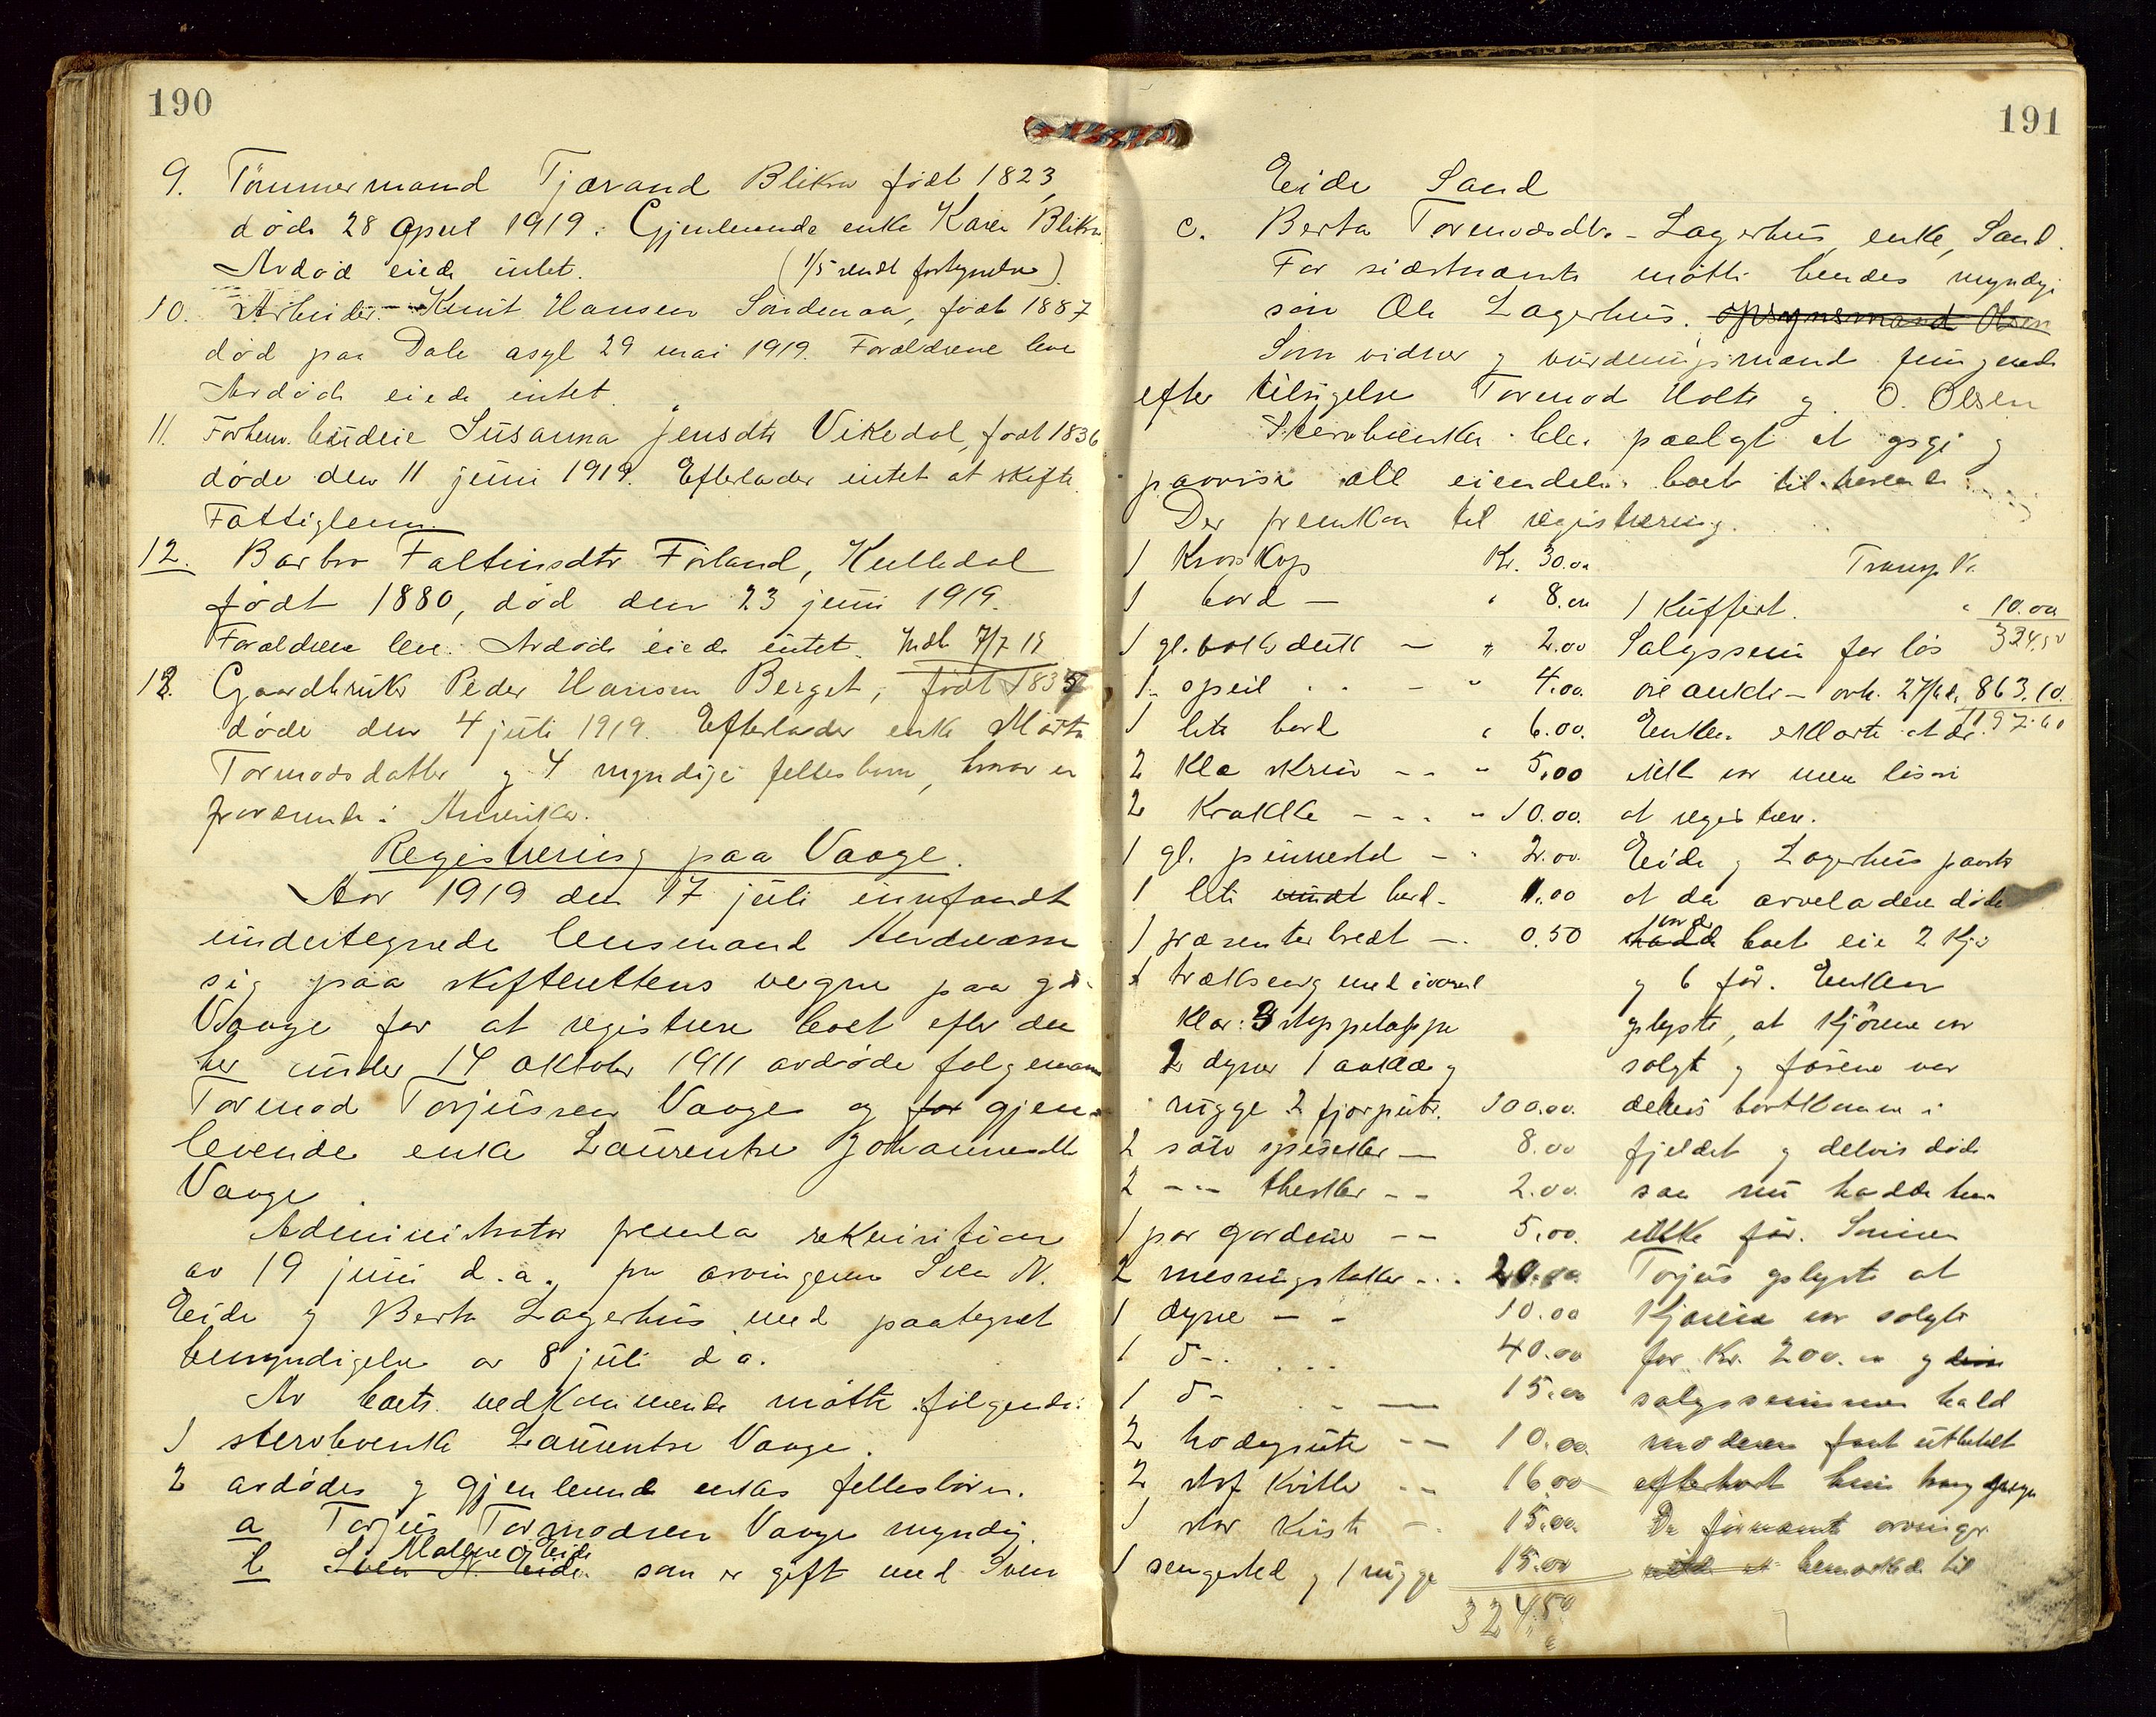 190
9. Tömmermand Tjærand Blikra född 1823,
döde 28 april 1919. Gjenlevende enke Karen Blikra
Avdöd eiede intet. (1/5 sendt forsynelse)
10. Arbeider Knut Hansen Söndenaa, födt 1887
död paa Dale asyl 29 mai 1919. Forældrene leve
Avdöde eiede intet.
11. Forhenv. budeie Susanna Jensdtr Vikedal, födt 1836
döde den 11 juni 1919. Efterlader intet at skifte.
Fattiglem.
12. Barbro Faltinsdtr Förland, Kvilldal
födt 1880, död den 23 juni 1919.
Forældrene leve. Avdöde eiede intet. Indb. 7/7 19
13. Gaardbruker Peder Hansen Berget, födt 1835
döde den 4 juli 1919. Efterlader enke Marta
Tormodsdatter og 4 myndige fellesbarn, hvorav en
fraværende i Amerika.
Registrering paa Vaage.
Aar 1919 den 17 juli innfandt
undertegnede lensmand
sig paa skifterettens vegne paa gd.
Vaage for at registrere boet efter den
her under 14 oktober 1911 avdöde folgemann
Tormod Torjussen Vaage og for gjen-
levende enke Laurentse Johannesdtr
Vaage.
Administrator fremla rekvisition
av 19 juni d.a. fra arvingerne Sven N.
Eide og Berta Lagerhus med paategnet
bemyndigelse av 8 juli d a.
Av boets vedkommende mötte fölgende:
1 stervboenke Laurentse Vaage.
2 avdödes og gjenlevende enkes fellesbörn.
a Torjus Tormodsen Vaage myndig.
Malene Eide
b Sven N. Eide som er gift med Sven
191
Eide Sand
c. Berta Tormodsdtr. Lagerhus, enke, Sand.
For sidstnævnte mötte hendes myndige
sön Ole Lagerhus. opsynsmand Olsen
Som vidner og vurderingsmænd fungerede
efter tilsigelse Tormod Holte og O. Olsen
Stervboenken blev paalagt at opgi og
paavise all eiendele boet tilhörende
Der fremkom til registrering.
1 Kroskap Kr. 30.00
1 bord - " 8.00
1 gl. - " 2.00
1 speil - " 4.00
1 lite bord " 6.00
2 klæ skrin - - " 5.00
2 Krakke - - - " 10.00
1 gl. pinnestol - " 2.00
1 lite rundt bord - 1.00
1 præsenterbredt - 0.50
1 trækseng med iværende
klær: 3 stoppetæpper
2 dyner 1 aaklæ og
rugge 2 fjorputer. 100.00
2 sölv spiseskeer - 8.00
2 -"- theskeer - - 2.00
1 par gardiner - - 5.00
2 messingstaker - - - 20.00
1 dyne - - 10.00
1 D- 40.00
1 D- 15.00
2 hodeputer - - 10.00
2 16.00
1 stor kiste - 15.00
1 sengested og 1 rugge 15.00
324.50
Transp. Kr.
1 Kuffert. " 10.00
334.50
Salgssum for lös
öre auktion avh. 27/6 d. 863.10
1197.60
Enken erklærte at der
ikke var mere lösöre
at registrere.
Eide og Lagerhus paastod
at da arveladeren döde
hadde boet eie 2 kjör
og 6 får. Enken
oplyste, at kjörene var
solgt og fårene var
delvis bortkommen i
fjeldet og delvis döde
saa nu hadde hun
ikke får. Sönnen
Torjus oplyste at
kjörene var solgte
for Kr. 200.00 og
salgssummen hadde
moderen faat utbetalt
efterhvert hun trang penger
De fornævnte arvinger
bemærkede til